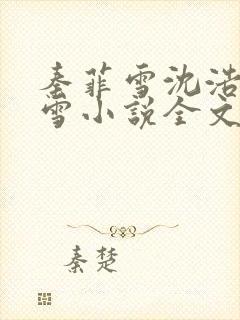 秦菲雪沈浩
雪小说全文
秦楚